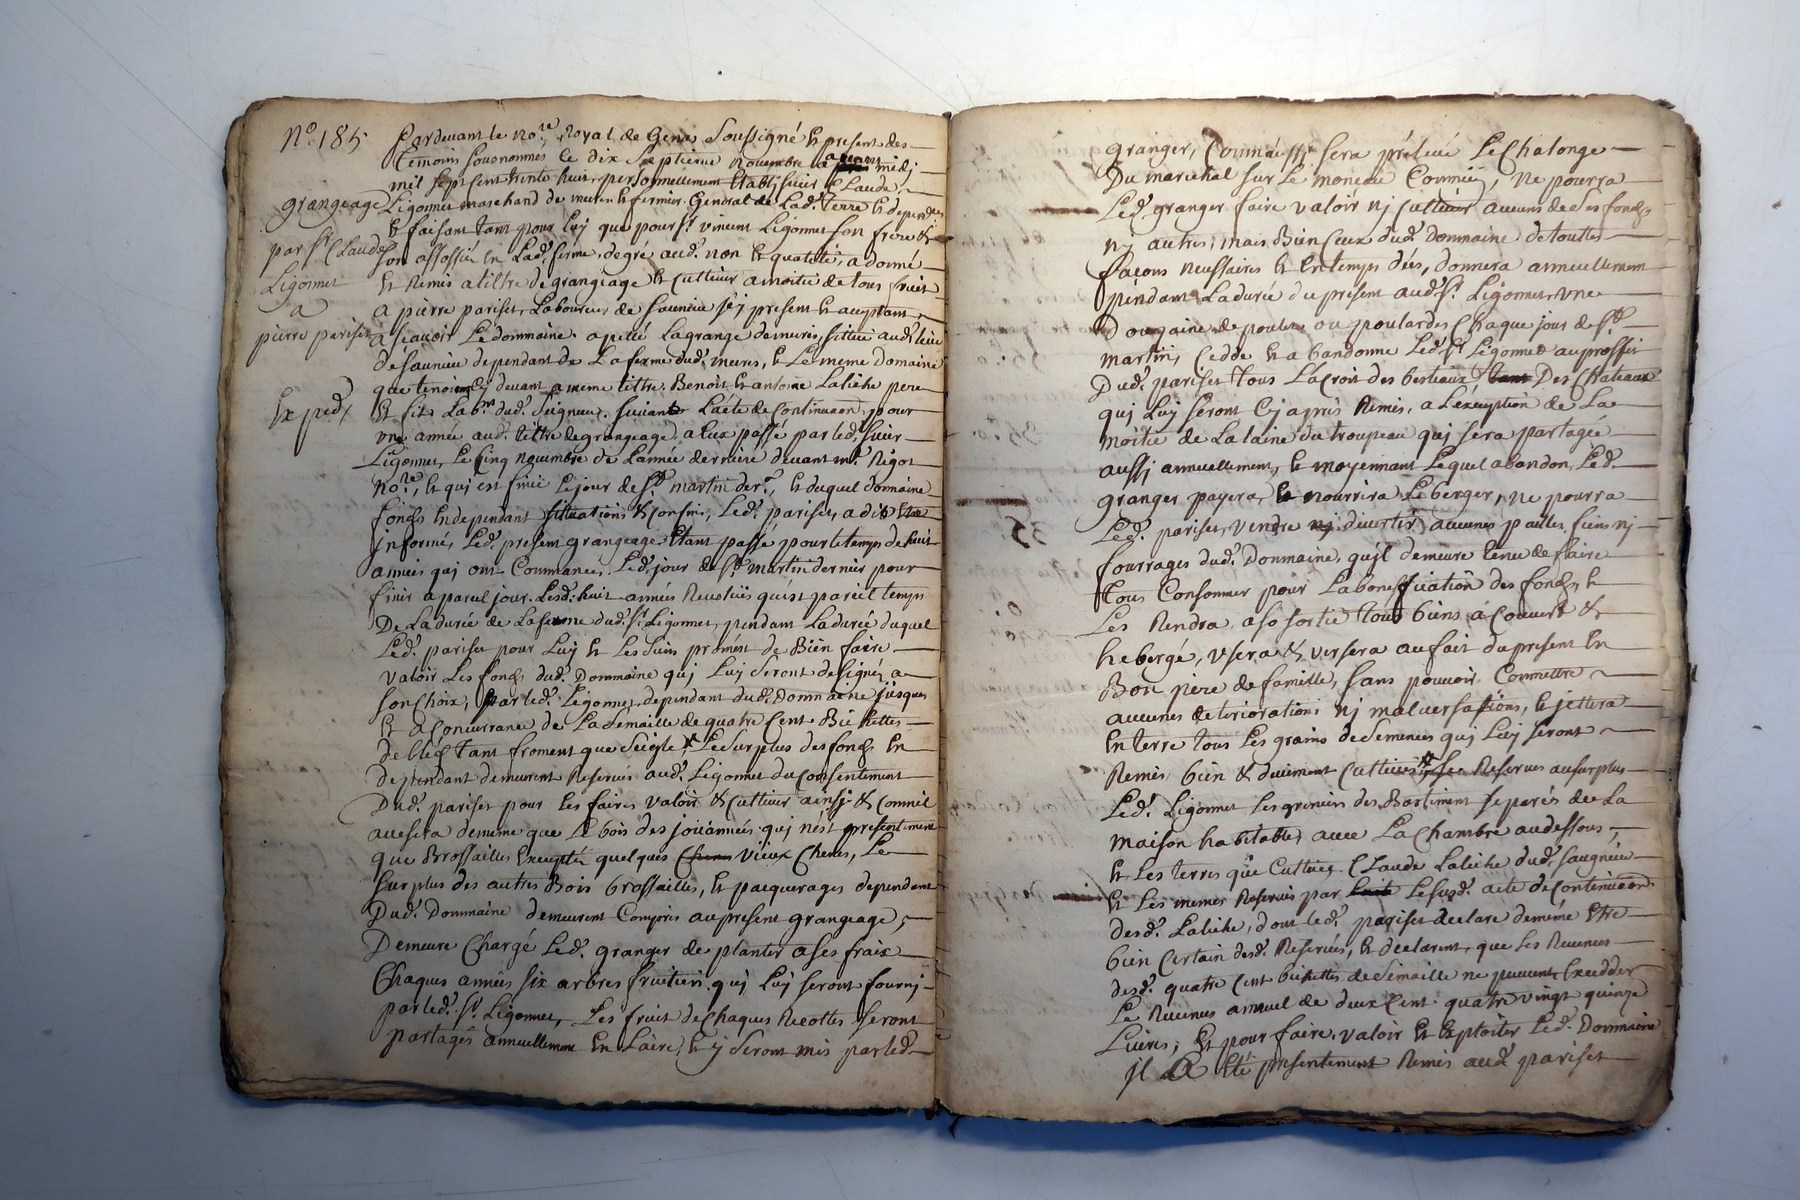 N° 185
grangeage
par Sr Claude
Ligonnet
a
pierre pariset
Expedx
Pardevant le nore Royal de Genes soussigné et present des
temoins sousnommés le dix septieme novembre avant midj
mil sept cent trente huit, personnellement Establj sieur Claude
Ligonnet marchand de meures et fermier General de Lad. terre et dependces
et faisant tant pour Luy que pour sr vincent Ligonnet son frere &
son assossié en Lad. ferme, degré aud. non et qualitté, a donné
et Remis a tiltre de grangeage et cultiver a moitié de tous fruit
a pierre pariset, Laboureur de sauniere jcj present et aceptant
a scavoir Le dommaine apellé Lagrange de meures, sittué aud. lieu
de sauniere dependant de La ferme dud. meures, et Le meme domaine
que tenoient cy devant a meme tiltre Benoit et antoine Laliche pere
et fils Labrs dud. Seigneur suivant L'acte de Continuaon pour
une année aud. tiltre de grangeage, a Eux passé par led. sieur
Ligonnet, Le cinq novembre de L'année derniere devant me Rigot
nore, et qui est finie Le jour de st martin derr, et duquel domaine
fonds en dependant sittuations & confins, Led. pariset, a dit Etre
informé, Led. present grangeage Etant passé pour le temps de huit
années qui ont Commancé Led. jour de st martin dernier pour
finir a pareil jour Lesd. huit années Revolües qui est pareil temps
De La durée de La ferme dud. sr Ligonnet, pendant La durée duquel
Led. pariset pour Luy et Les siens promest de Bien faire
valoir Les fonds dud. Dommaine quj Luy seront designés a
son choix, par led. Ligonnet dependant dud. Dommaine jusques
et a Concurrance de La semaille de quatre Cent Bichettes
de bled tant froment que seigle, Le surplus des fonds en
dependant demeurent Reservés aud. Ligonnet du consentement
Dud. pariset pour les faire valoir & cultiver ainsj & comme il
avisera de meme que Le bois des jouannées quj n'est presentement
que Brossailles Excepté quelques vieux Chenes, Le
surplus des autres Bois brossailles, et pacquerages dependant
Dud. Dommaine demeurent Compris au present grangeage,
Demeure Chargé Led. granger de planter a ses fraix
Chaques années six arbres fruitiers quj Luj seront fournj
par led. sr Ligonnet, Les fruit de Chaques Recottes seront
partagés annuellement En L'aire, et y seront mis par led.
granger, sera prélevé Le Chalonge
Du marechal sur Le monceau Commun, ne pourra
Led. granger faire valoir nj cultiver aucuns de ses fonds
nj autres, mais Bien Ceux dud. dommaine de touttes
façons necessaires et En temps dües, donnera annuellement
pendant La durée du present aud. sr Ligonnet, une
Douzaine de poulets ou poulardes Chaque jour de st
martin, Cedde et abandonne Led. sr Ligonnet au proffit
Dud. pariset tous L'acroit des bestiaux Des Chateaux
quj Luy seront Cy après Remis, a L'exception de La
moitié de La laine du troupeau quj sera partagée
aussj annuellement, et moyennant Lequel abandon, Led.
granger payera, et nourrira Le berger, ne pourra
Led. pariset, vendre nj divertir aucunes pailles, fiens nj
fourrages dud. Dommaine, qu'il demeure tenu de faire
tous Consommer pour La boniffication des fonds, et
Les Rendra a so sortie tous biens a couvert &
hebergé, usera & versera au fait du present En
Bon pere de famille, sans pouvoir Commettre
aucunes deteriorations nj malversations, et jettera
En terre tous Les grains de semences quj Luj seront
Remis bien & duëment cultivés, se Reserve au surplus
Led. Ligonnet Les greniers des Bastiment separés de La
maison habitable, avec La Chambre au dessous,
et Les terres que cultive Claude Laliche dud. saugniere
et Les memes Reservés par Le susd. acte de Continuaon
desd. Laliche, dont led. pariset declare de même Etre
bien Certain desd. Reservés, et declarent, que Les Revenus
desd. quatre Cent bichettes de semaille ne peuvent Exedder
Le Revenu annuel de deux Cent quatre vingt quinze
Livres; Et pour faire valoir et Exploiter Led. Dommaine
jl a Eté presentement Remis aud. pariset